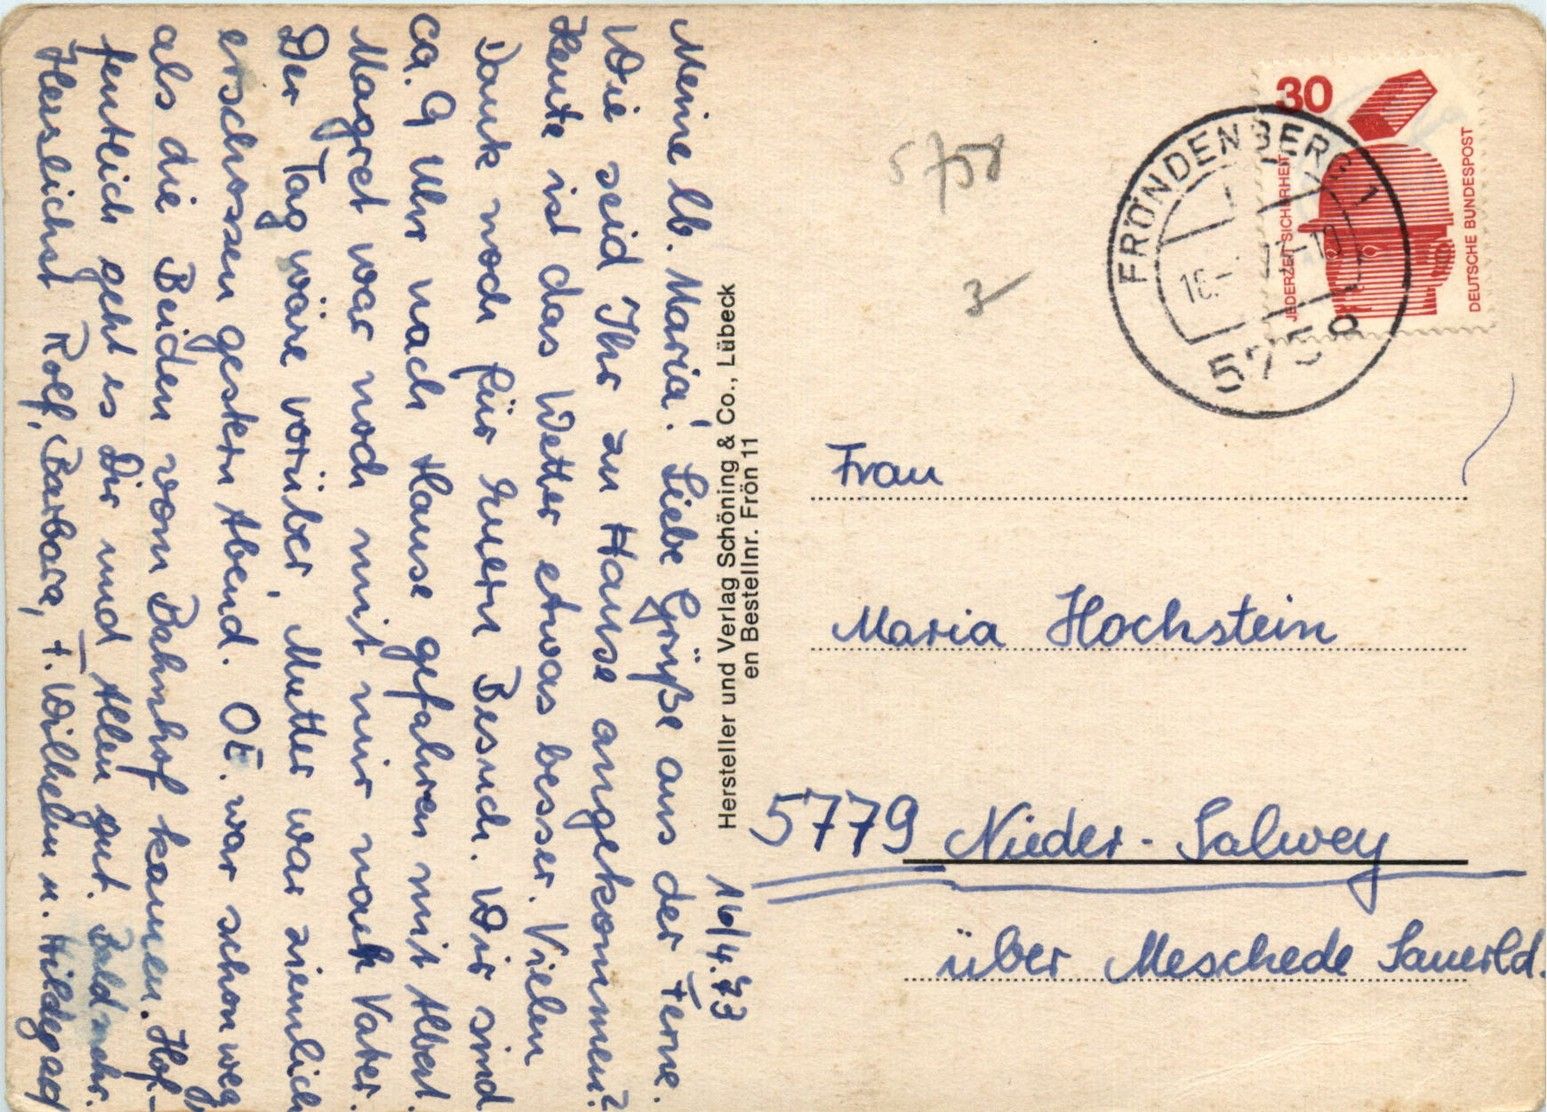 16/4.73
Meine lb. Maria! Liebe Grüße aus der Ferne.
Wie seid Ihr zu Hause angekommen?
Heute ist das Wetter etwas besser. Vielen
Dank noch für Euern Besuch. Wir sind
ca. 9 Uhr nach Hause gefahren mit Albert.
Magret war noch mit mir nach Vater.
Der Tag wäre vorüber, Mutter war ziemlich
erschossen gestern Abend. OE. war schon weg
als die Beiden vom Bahnhof kamen. Hof-
fentlich geht es Dir und Allen gut. Bald mehr.
Herzlichst Rolf, Barbara, T. Wilhelm u. Hildegad
Hersteller und Verlag Schöning & Co., Lübeck
en Bestellnr. Frön 11
5758
3
30
JEDERZEIT SICHERHEIT
DEUTSCHE BUNDESPOST
FRÖNDENBERG 1
5758
Frau
Maria Hochstein
5779 Nieder-Salwey
über Meschede Sauerld.